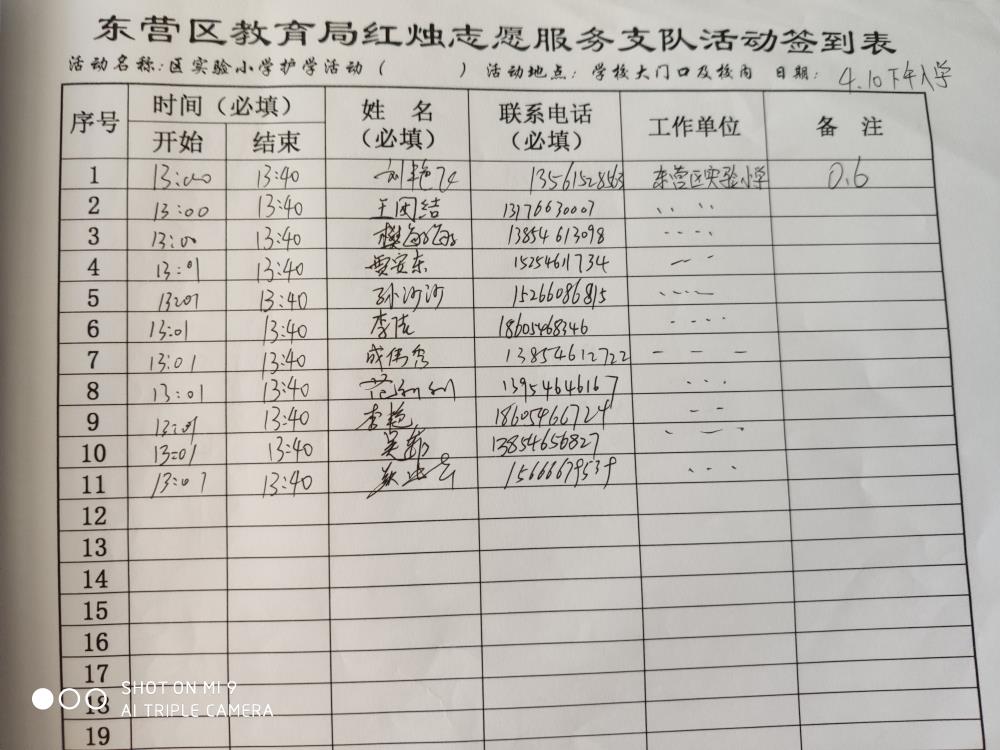 东营区教育局红烛志愿服务支队活动签到表
活动名称:区实验小学护学活动（ ） 活动地点：学校大门口及校内 日期：4.10下午入学
序号 时间（必填） 姓名（必填） 联系电话（必填） 工作单位 备注
开始 结束
1 13:00 13:40 刘艳飞 13561528563 东营区实验小学 0.6
2 13:00 13:40 王团结 13176630007
3 13:00 13:40 樊海海 13854613098
4 13:01 13:40 贾安东 15254611734
5 13:01 13:40 孙沙沙 15266086815
6 13:01 13:40 18605468346
7 13:01 13:40 成伟秀 13854612722
8 13:01 13:40 范利利 13954646167
9 13:01 13:40 李艳 18605466724
10 13:01 13:40 13854656827
11 13:07 13:40 15666679539
12
13
14
15
16
17
18
19
SHOT ON MI 9
AI TRIPLE CAMERA